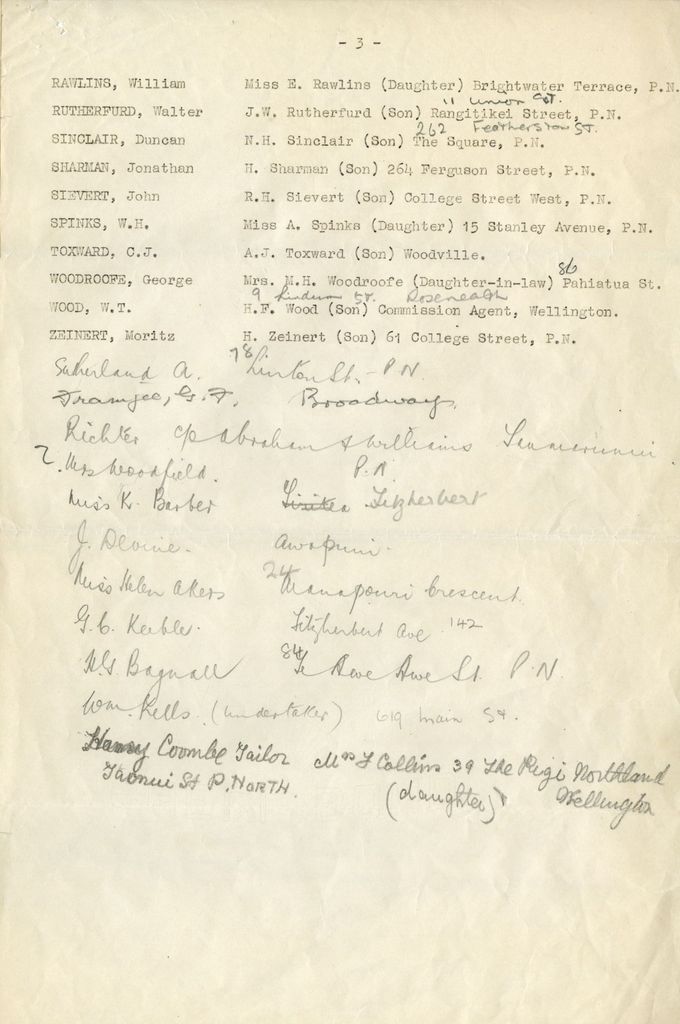 - 3 -
RAWLINS, William Miss E. Rawlins (Daughter) Brightwater Terrace, P.N.
11 Union St.
RUTHERFURD, Walter J.W. Rutherfurd (Son) Rangitikei Street, P.N.
262 Featherston St.
SINCLAIR, Duncan N.H. Sinclair (Son) The Square, P.N.
SHARMAN, Jonathan H. Sharman (Son) 264 Ferguson Street, P.N.
SIEVERT, John R.H. Sievert (Son) College Street West, P.N.
SPINKS, W.H. Miss A. Spinks (Daughter) 15 Stanley Avenue, P.N.
TOXWARD, C.J. A.J. Toxward (Son) Woodville.
86
WOODROOFE, George Mrs. M.H. Woodroofe (Daughter-in-law) Pahiatua St.
9 St. Roseneath
WOOD, W.T. H.F. Wood (Son) Commission Agent, Wellington.
ZEINERT, Moritz H. Zeinert (Son) 61 College Street, P.N.
Sutherland A. 78 Linton St. - P.N.
Framjee, G.F. Broadway.
Richter c/o Abraham & Williams Taumarunui.
?. Mrs Woodfield. P.N.
Miss K. Barber Fitzherbert
J. Devine. Awapuni.
Miss Helen Akers 24 Manapouri Crescent.
G.C. Keeble. Fitzherbert Ave 142
H.G. Bagnall 84 Te Awe Awe St. P.N.
Wm. Kells. (undertaker) 619 Main St.
Harry Coombe Tailor Mrs F Collins 39 The Rigi Northland
Taonui St P. NORTH. (daughter) Wellington